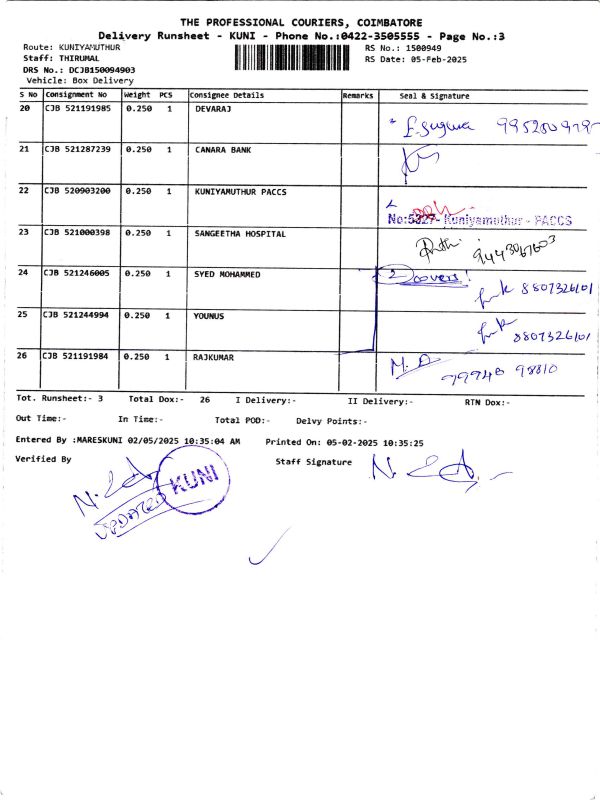 THE PROFESSIONAL COURIERS, COIMBATORE
Delivery Runsheet - KUNI - Phone No.:0422-3505555 - Page No.:3
Route: KUNIYAMUTHUR RS No.: 1500949
Staff: THIRUMAL RS Date: 05-Feb-2025
DRS No.: DCJB150094903
Vehicle: Box Delivery
S No Consignment No Weight PCS Consignee Details Remarks Seal & Signature
20 CJB 521191985 0.250 1 DEVARAJ
21 CJB 521287239 0.250 1 CANARA BANK
22 CJB 520903200 0.250 1 KUNIYAMUTHUR PACCS
No:5327- Kuniyamuthur - PACCS
23 CJB 521000398 0.250 1 SANGEETHA HOSPITAL
9443067603
24 CJB 521246005 0.250 1 SYED MOHAMMED 2 covers!
8807326101
25 CJB 521244994 0.250 1 YOUNUS
8807326101
26 CJB 521191984 0.250 1 RAJKUMAR
99740 98810
Tot. Runsheet:- 3 Total Dox:- 26 I Delivery:- II Delivery:- RTN Dox:-
Out Time:- In Time:- Total POD:- Delvy Points:-
Entered By :MARESKUNI 02/05/2025 10:35:04 AM Printed On: 05-02-2025 10:35:25
Verified By Staff Signature
KUNI
UPDATED